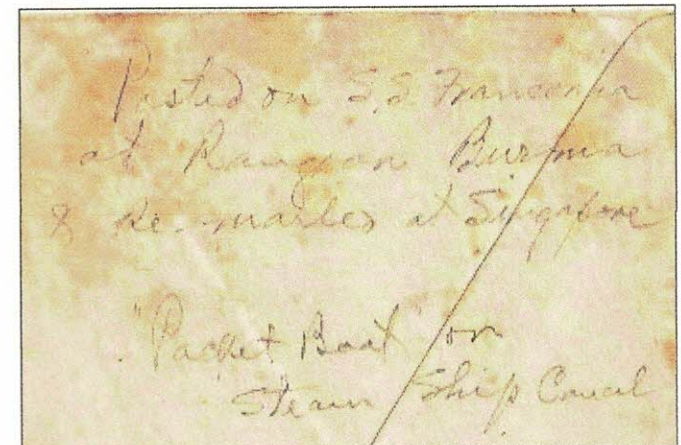 Posted on S.S. Franconia
at Rangoon Burma
& Re-marked at Singapore
"Packet Boat" on
Steam Ship